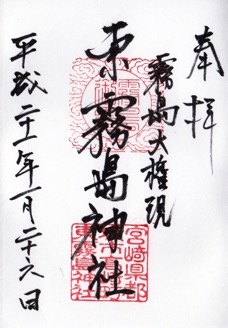 奉拝
霧島大権現
東霧島神社
平成二十一年一月二十六日
宮崎県都
東霧島神社